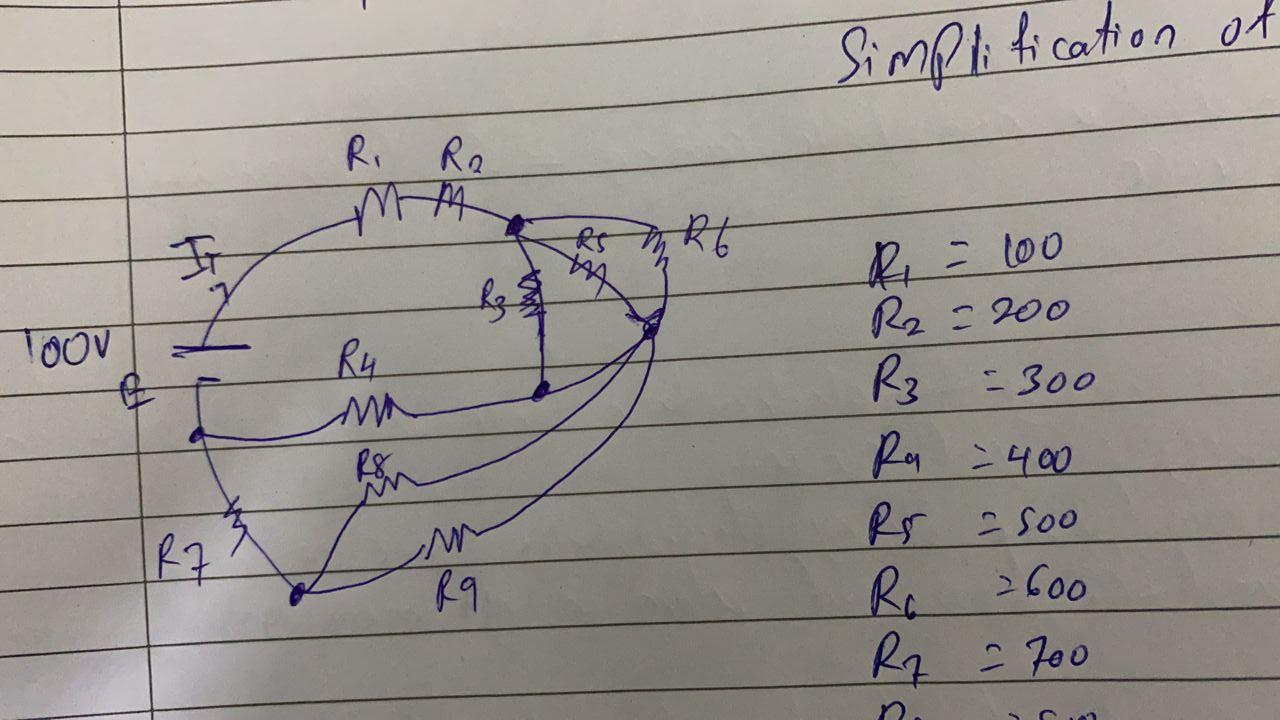 Simplification of
R1 R2
IT
R5 R6
R3
100V
E
R4
R8
R7
R9
R1 = 100
R2 = 200
R3 = 300
R4 = 400
R5 = 500
R6 = 600
R7 = 700